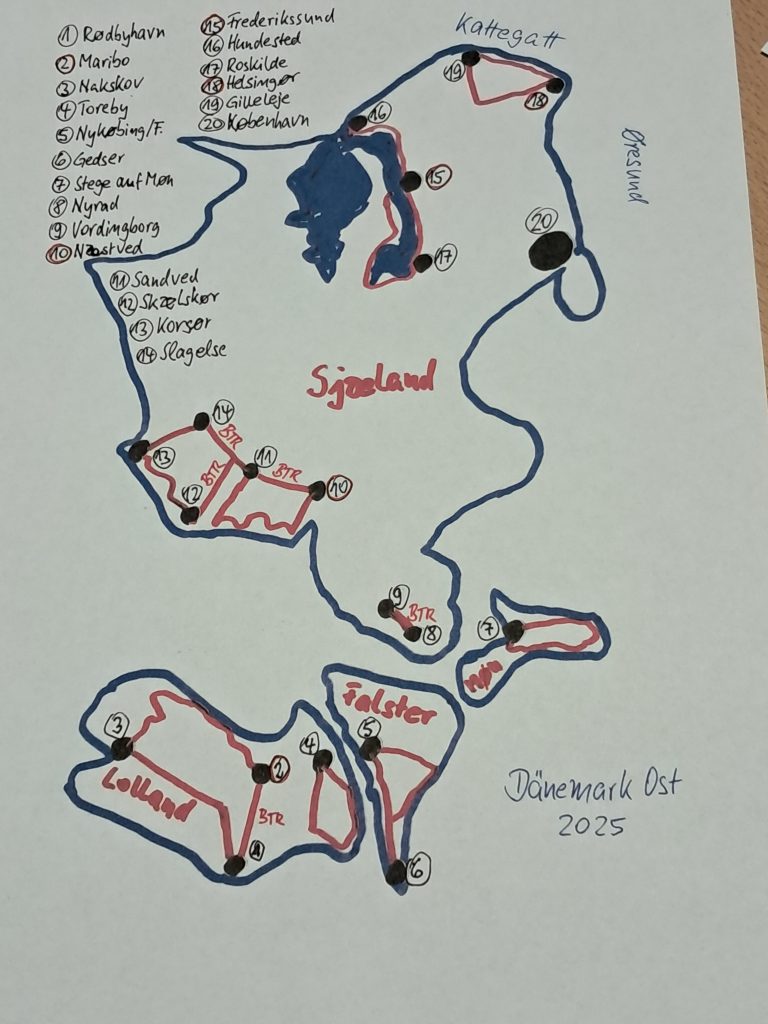 ① Rødbyhavn
② Maribo
③ Nakskov
④ Toreby
⑤ Nykøbing/F.
⑥ Gedser
⑦ Stege auf Møn
⑧ Nyrad
⑨ Vordingborg
⑩ Næstved
⑪ Sandved
⑫ Skælskør
⑬ Korsør
⑭ Slagelse
⑮ Frederikssund
⑯ Hundested
⑰ Roskilde
⑱ Helsingør
⑲ Gilleleje
⑳ København
Kattegatt
Øresund
19
18
16
15
20
17
Sjæland
14
BTR
13
BTR
11
BTR
12
10
9
BTR
8
7
Møn
Falster
3
5
4
2
Lolland
BTR
1
6
Dänemark Ost
2025